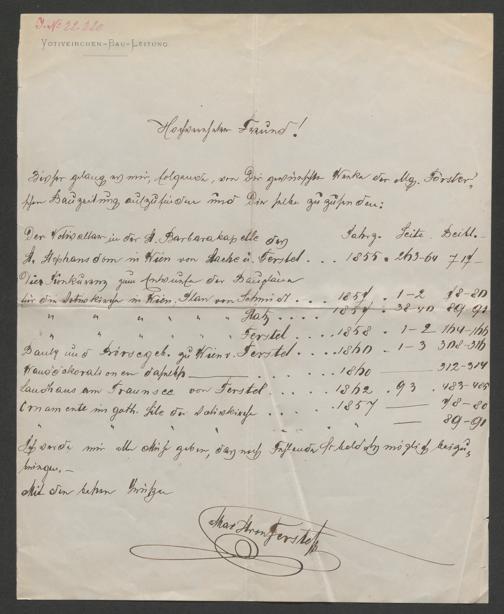 J. № 22.220
VOTIVKIRCHEN-BAU-LEITUNG
Hochverehrter Freund!
Bisher gelang es mir, folgende, von Dir gewünschte Werke der Allg. Förster'
schen Bauzeitung, aufzufinden und Dir selbe zuzusenden:
Jahrg. Seite Beitl.
Der Votivaltar in der St. Barbarakapelle des
St. Stephansdom in Wien von Ferstel . . . 1855 . 263-64 717
Die Konkurenz zum Entwurfe der Baupläne
für die Votivkirche in Wien. Plan von Schmidt . . . 1857 . 1-2 78-80
" " " " " Statz . . . 1857 . 38-40 89-92
" " " " " Ferstel . . 1858 . 1-2 164-166
Bank und Börsegeb. zu Wien v. Ferstel . . . 1860 . 1-3 308-316
Wanddekorationen daselbst 1860 — 312-314
Landhaus am Traunsee von Ferstel . . . . 1862 . 93 . 483-485
Ornamente im goth. Stile der Votivkirche . . . . 1857 — 78-80
" " " " " " — 89-91
Ich werde mir alle Mühe geben, das noch Fehlende so bald als möglich beizu-
bringen. —
Mit den besten Grüßen
Max von Ferstel